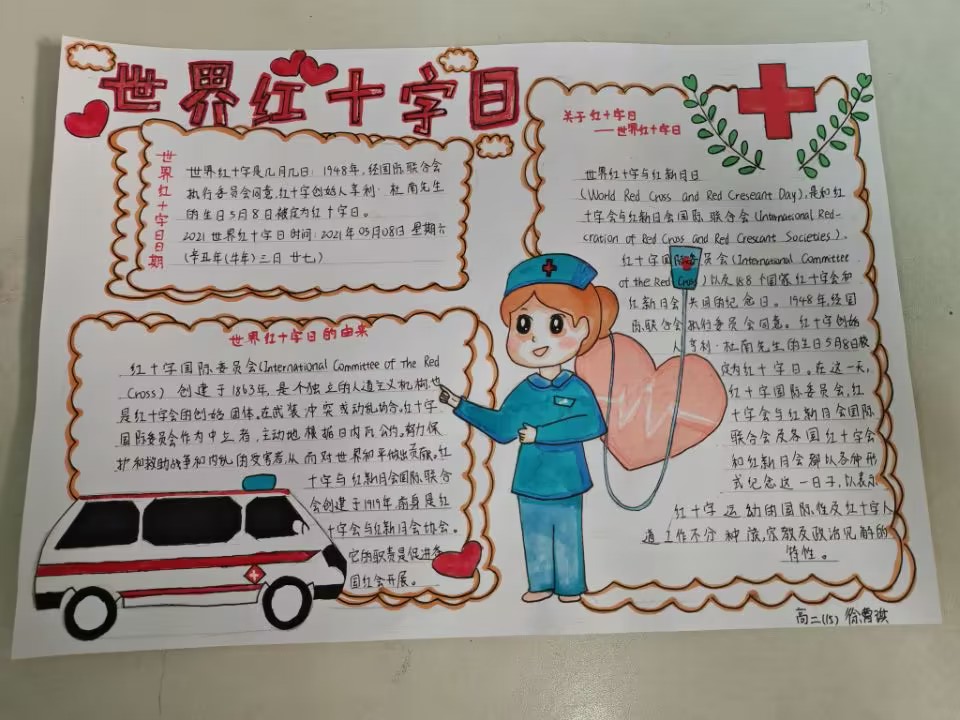 世界红十字日
世界红十字日日期
世界红十字是几月几日：1948年，经国际联合会
执行委员会同意，红十字创始人亨利·杜南先生
的生日5月8日被定为红十字日。
2021世界红十字日时间：2021年05月08日 星期六
(辛丑年(牛年)三月 廿七)
世界红十字日的由来
红十字国际委员会(International Committee of the Red
Cross) 创建于1863年，是个独立的人道主义机构，也
是红十字会的创始团体。在武装冲突或动乱场合，红十字
国际委员会作为中立者，主动地根据日内瓦公约，努力保
护和救助战争和内乱的受害者，从而对世界和平做出贡献。红
十字与红新月会国际联合
会创建于1919年，前身是红
十字会与红新月会协会。
它的职责是促进各
国红会开展。
关于红十字日
——世界红十字日
世界红十字与红新月日
(World Red Cross and Red Creseant Day)，是红
十字会与红新月会国际联合会(International Red-
cration of Red Cross and Red Crescant Societies)、
红十字国际委员会(International Committee
of the Red Cross)以及188个国家红十字会和
红新月会共同的纪念日。1948年，经国
际联合会执行委员会同意，红十字创始
人亨利·杜南先生的生日5月8日被
定为红十字日。在这一天，
红十字国际委员会，红
十字会与红新月会国际
联合会及各国红十字会
和红新月会都以各种形
式纪念这一日子，以表示
红十字运动的国际性及红十字人
道工作不分种族，宗教及政治见解的
特性。
高二(15)